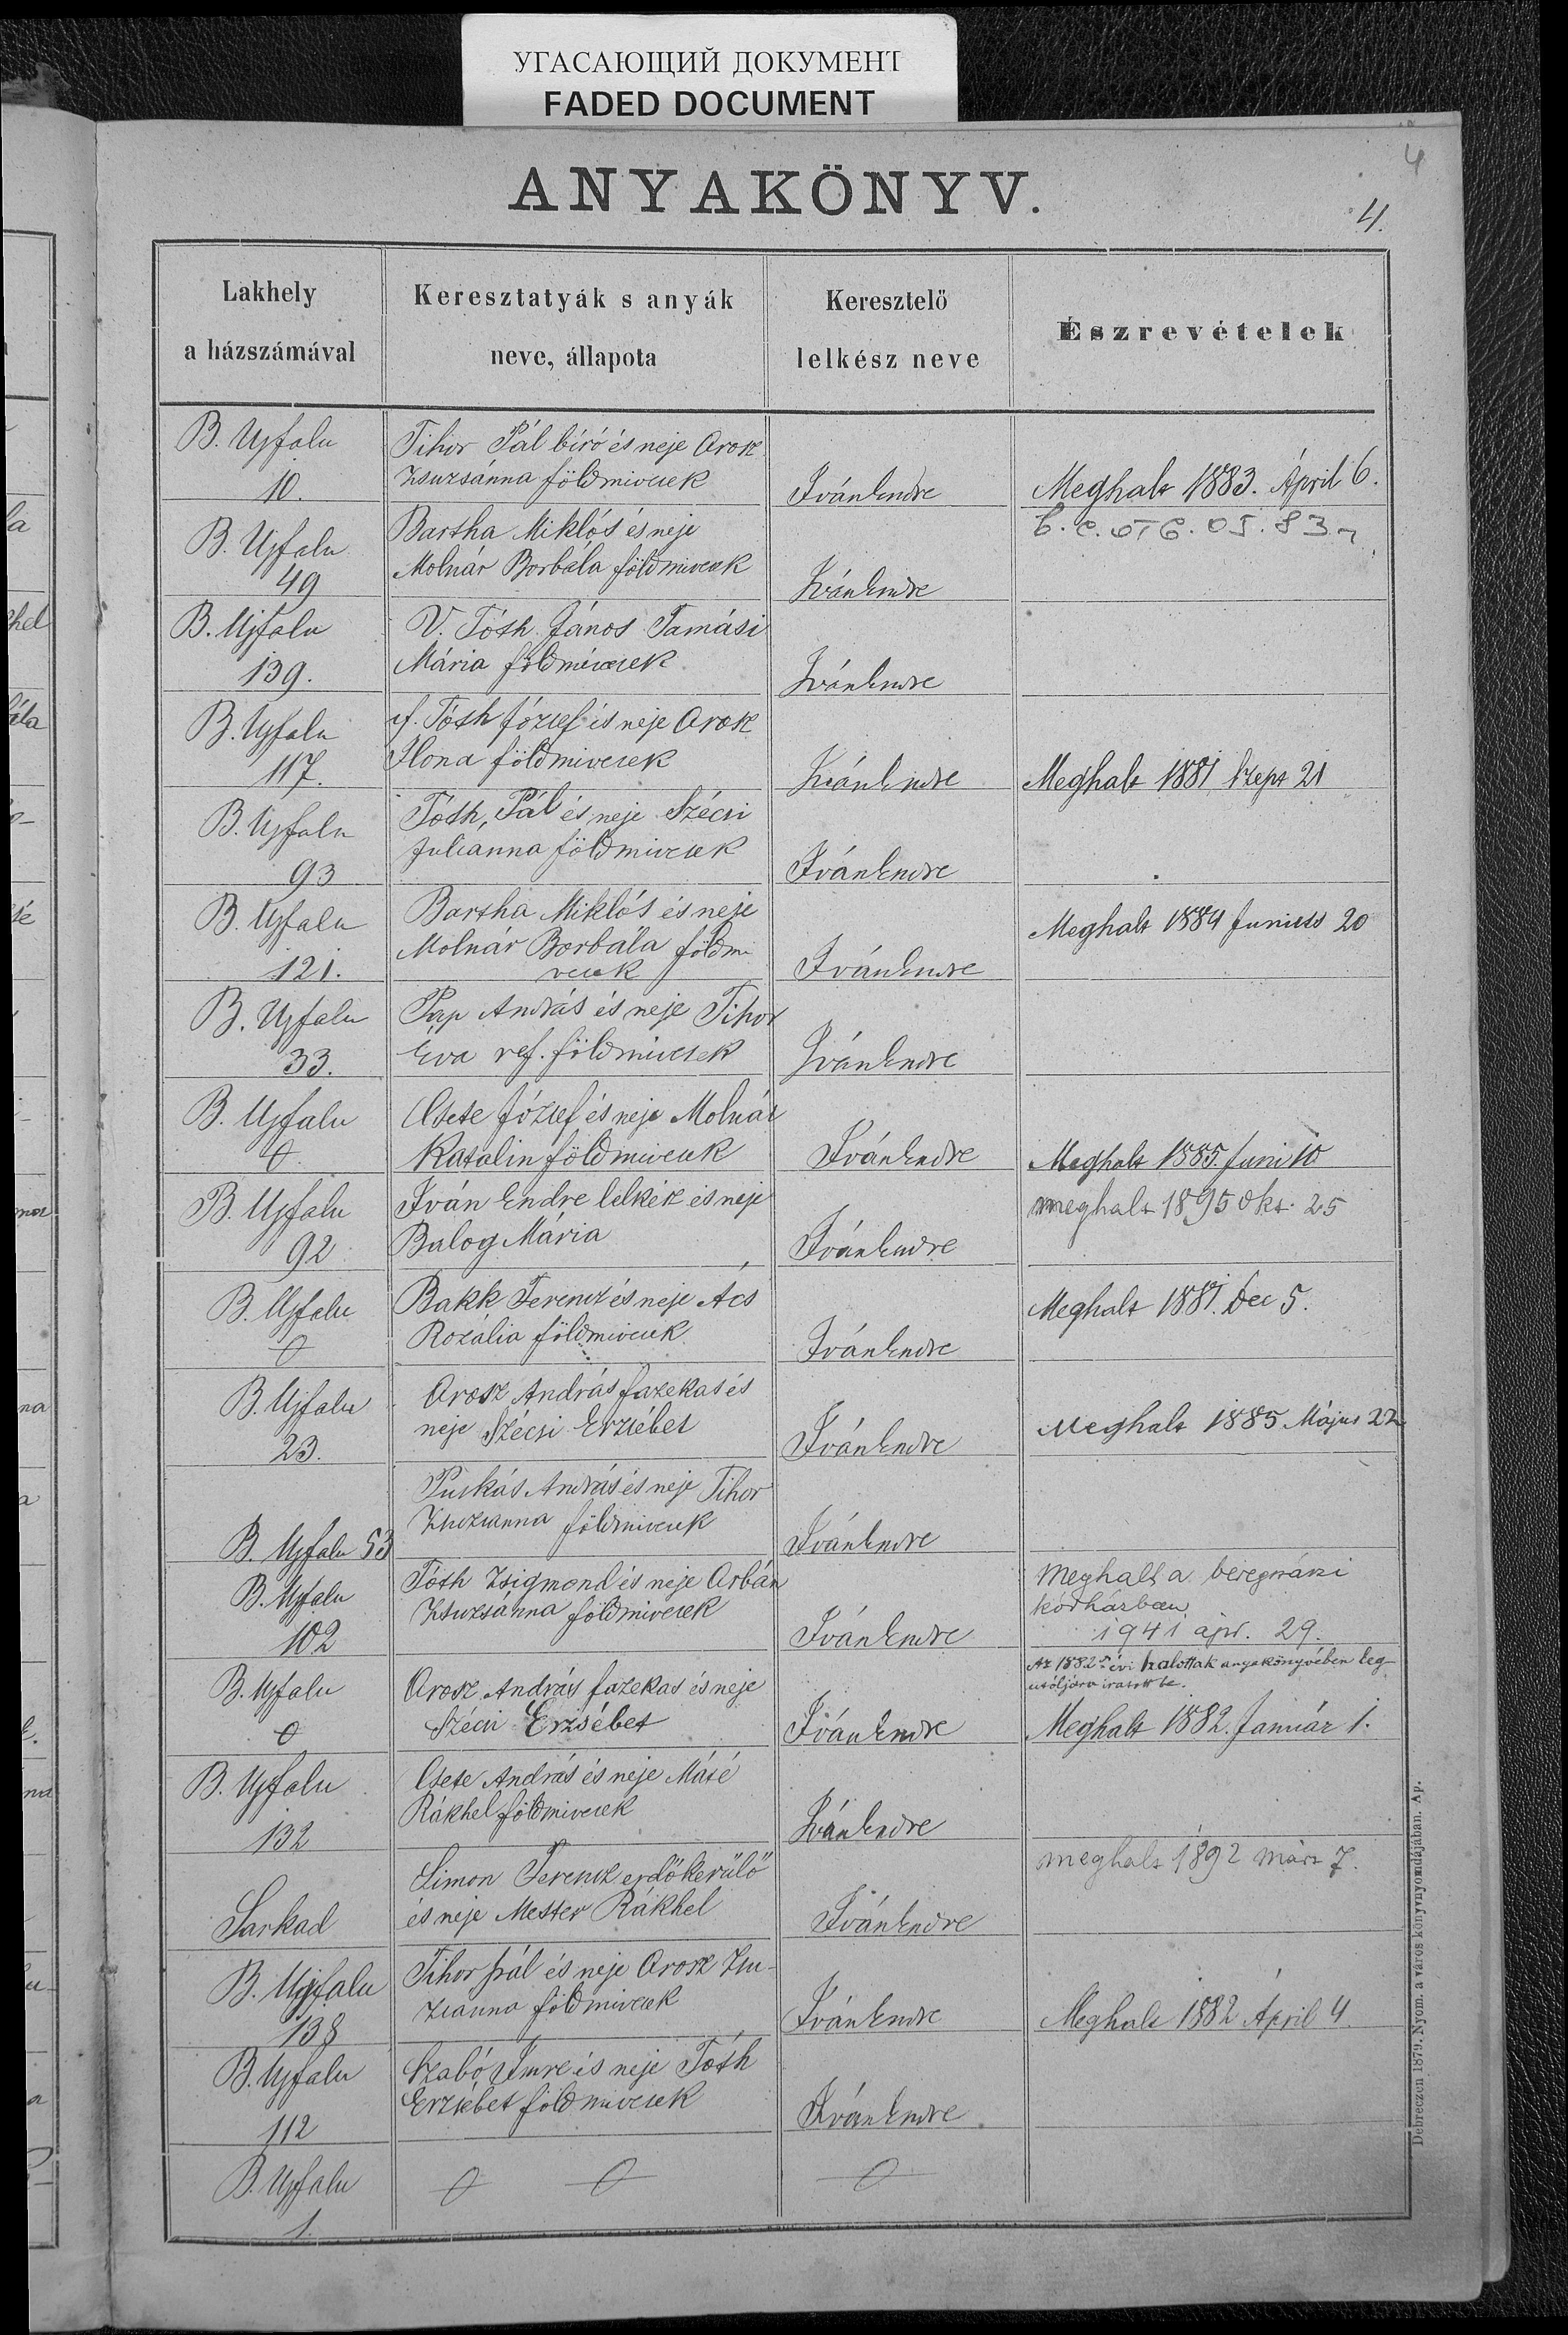 УГАСАЮЩИЙ ДОКУМЕНТ
FADED DOCUMENT
4
ANYAKÖNYV.
4.
Lakhely
a házszámával
Keresztatyák s anyák
neve, állapota
Keresztelő
lelkész neve
Észrevételek
B. Ujfalu
10.
Tihor Pál biró és neje Orosz
Zsuzsánna földmivesek
Iván Endre
Meghalt 1883. Ápril 6.
B. Ujfalu
49
Bartha Miklós és neje
Molnár Borbála földmivesek
Iván Endre
B. Ujfalu
139.
V. Tóth János Tamási
Mária földmivesek
Iván Endre
B. Ujfalu
117.
if. Tóth József és neje Orosz
Ilona földmivesek
Iván Endre
Meghalt 1881 Szept 21
B. Ujfalu
93
Tóth Pál és neje Szécsi
Julianna földmivesek
Iván Endre
B. Ujfalu
121.
Bartha Miklós és neje
Molnár Borbála földmi
vesek
Iván Endre
Meghalt 1884 Junius 20
B. Ujfalu
33.
Pap András és neje Tihor
Éva ref. földmivesek
Iván Endre
B. Ujfalu
0
Csete József és neje Molnár
Katalin földmivesek
Iván Endre
Meghalt 1885. Juni 10
B. Ujfalu
92
Iván Endre lelkész és neje
Balog Mária
Iván Endre
meghalt 1895 okt. 25
B. Ujfalu
0
Bakk Ferencz és neje Ács
Rozália földmivesek
Iván Endre
Meghalt 1881. Dec 5.
B. Ujfalu
23.
Orosz András fazekas és
neje Szécsi Erzsébet
Iván Endre
Meghalt 1885 Május 22
B. Ujfalu 53
Puskás András és neje Tihor
Zsuzsanna földmivesek
Iván Endre
B. Ujfalu
102
Tóth Zsigmond és neje Orbán
Zsuzsánna földmivesek
Iván Endre
Meghalt a beregszászi
kórházban
1941 ápr. 29.
B. Ujfalu
0
Orosz András fazekas és neje
Szécsi Erzsébet
Iván Endre
Az 1882ik évi halottak anyakönyvében leg-
utóljára iratott be.
Meghalt 1882. Január 1.
B. Ujfalu
132
Csete András és neje Máté
Rákhel földmivesek
Iván Endre
Sarkad
Simon Ferencz erdőkerülő
és neje Mester Rákhel
Iván Endre
meghalt 1892 márz 7.
B. Ujfalu
138
Tihor Pál és neje Orosz Zsu-
zsanna földmivesek
Iván Endre
Meghalt 1882 Ápril 4.
B. Ujfalu
112
Szabó Imre és neje Tóth
Erzsébet földmivesek
Iván Endre
B. Ujfalu
1.
0 0
0
Debreczen 1879. Nyom. a város könyvnyomdájában. Ap.